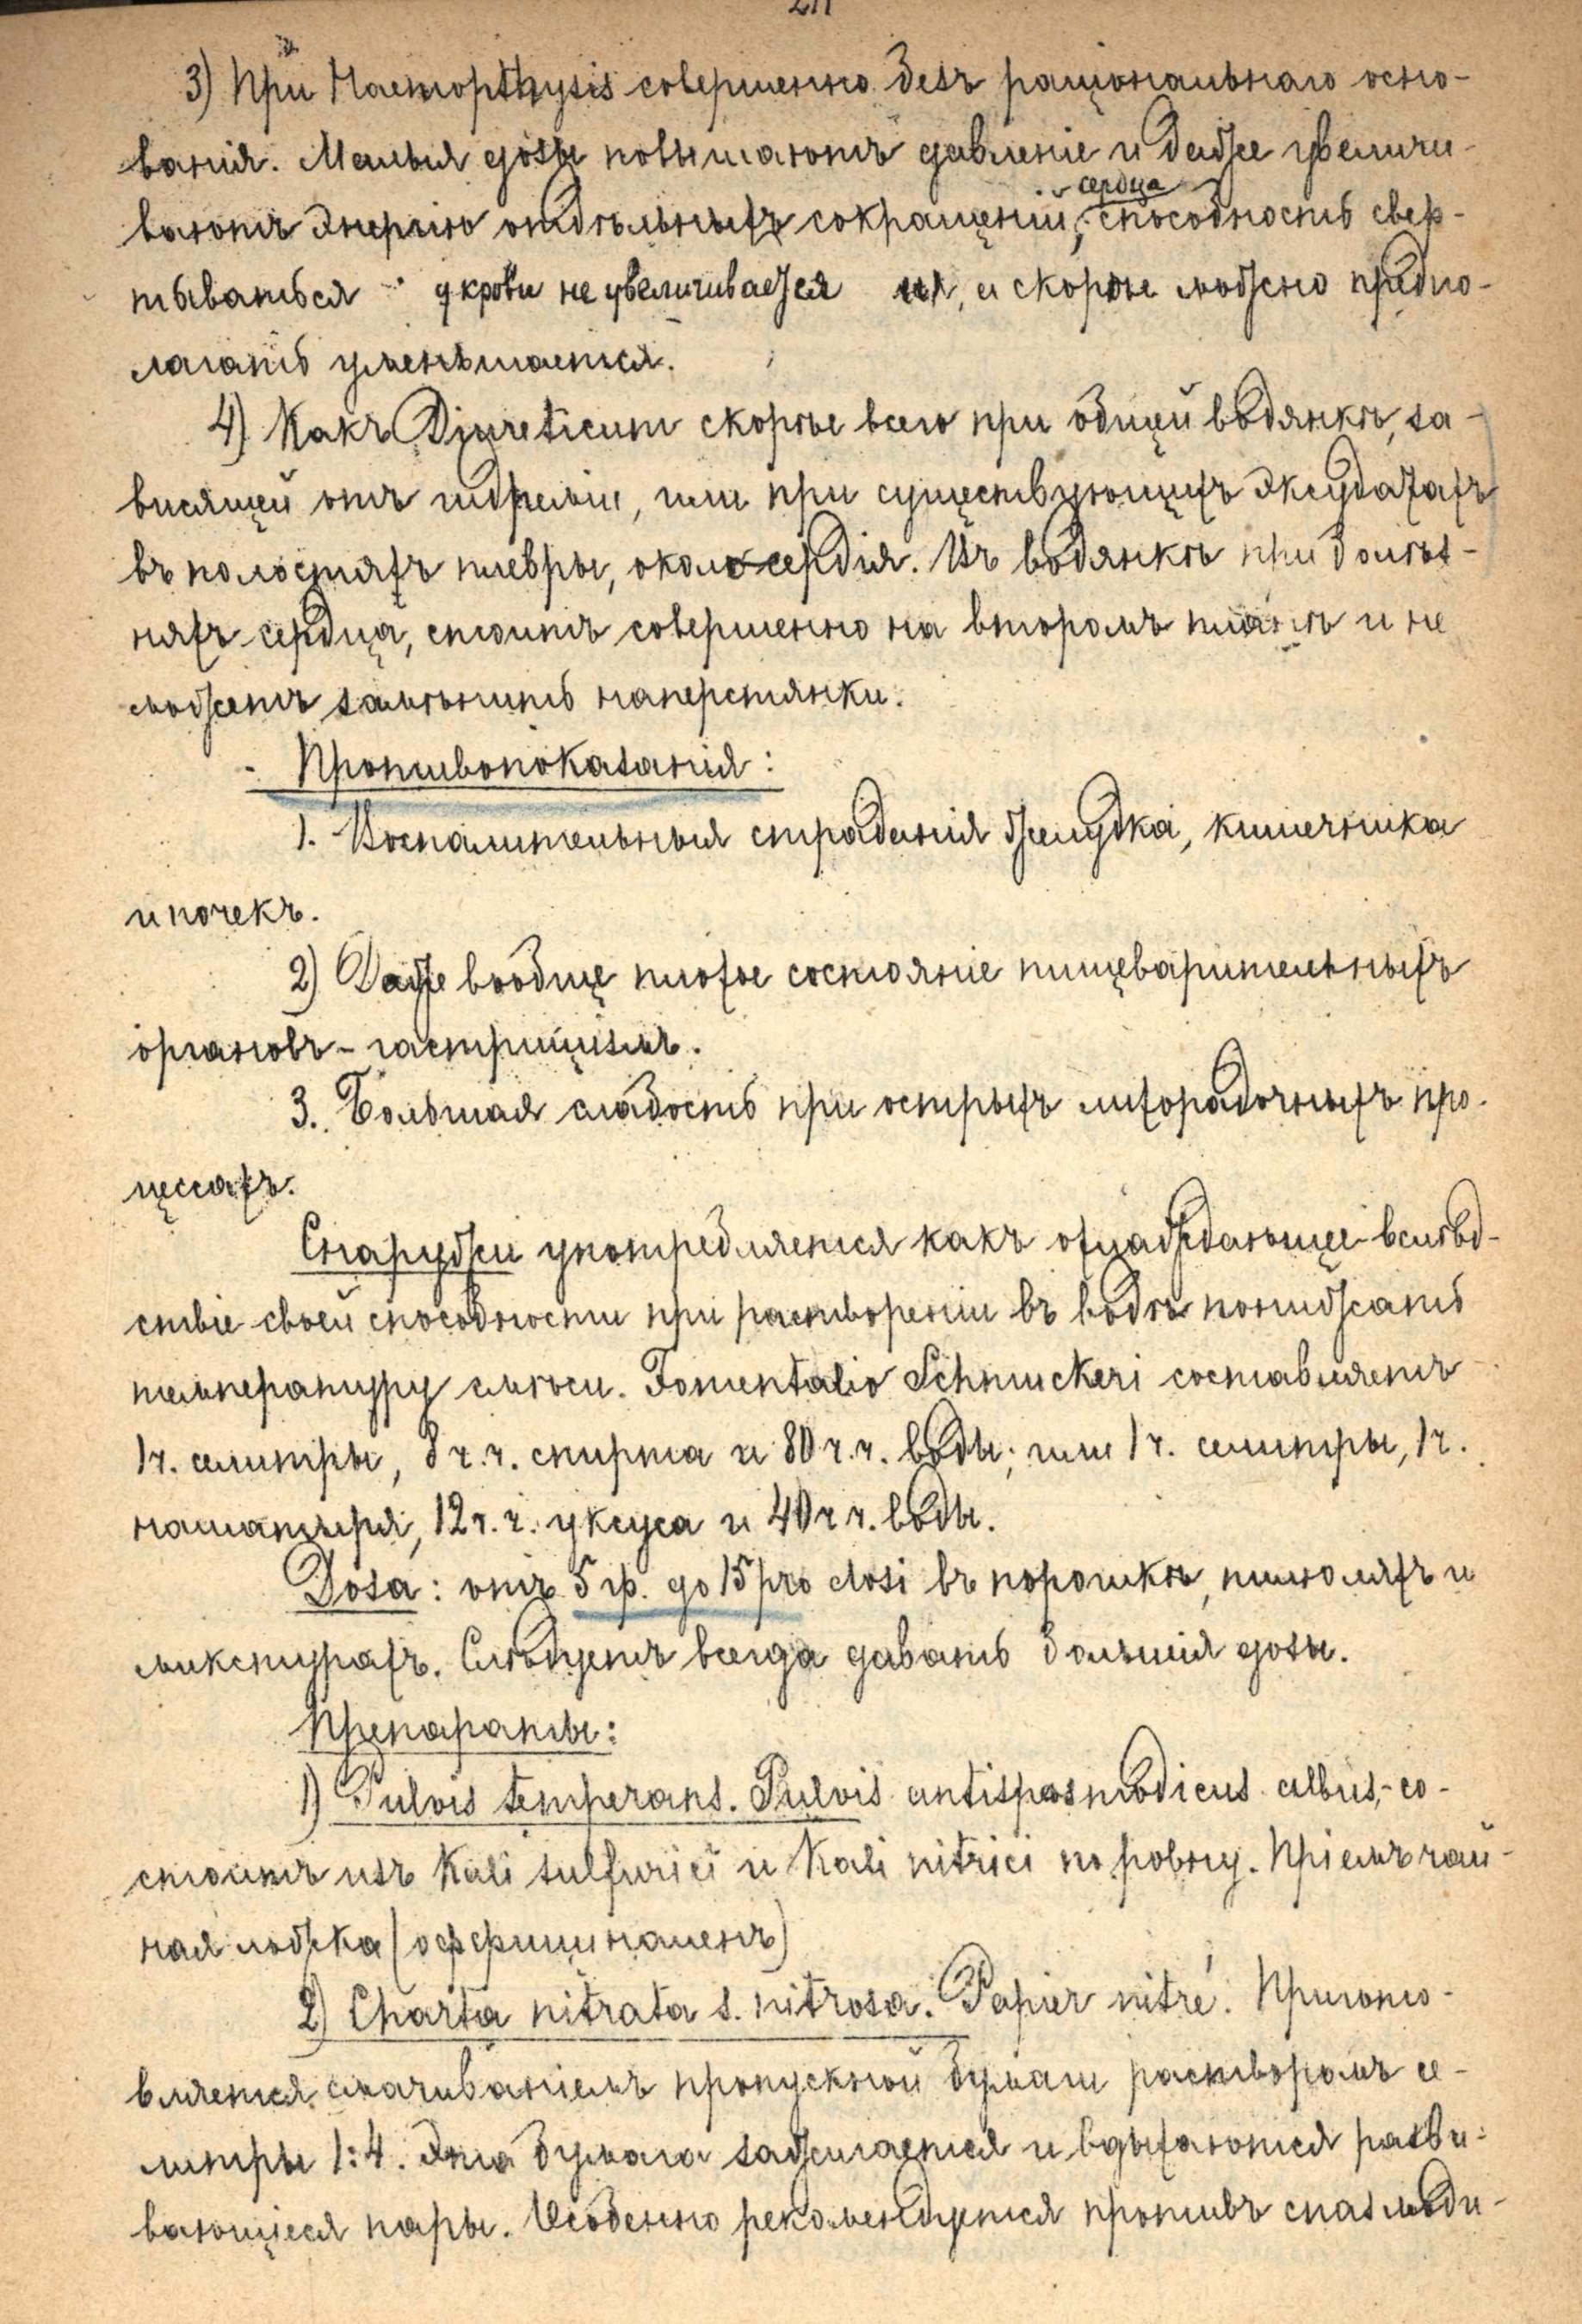 3) При Haemopthysis совершенно безъ раціональнаго осно-
ванія. Малыя дозы повышаютъ давленіе и даже увеличи-
сердца
ваютъ энергію отдѣльныхъ сокращеній; способность свер-
тываться у крови не увеличивается, и скорѣе можно предпо-
лагать уменьшается.
4) Какъ Diureticum скорѣе всего при общей водянкѣ, за-
висящей отъ гидреміи, или при существующихъ эксудатахъ
въ полостяхъ плевры, околосердія. Въ водянкѣ при болѣз-
няхъ сердца, стоитъ совершенно на второмъ планѣ и не
можетъ замѣнить наперстянки.
Противопоказанія:
1. Воспалительныя страданія желудка, кишечника
и почекъ.
2) Даже вообще плохое состояніе пищеварительныхъ
органовъ - гастрицизмъ.
3. Большая слабость при острыхъ лихорадочныхъ про-
цессахъ.
Снаружи употребляется какъ охлаждающее вслѣд-
ствіе своей способности при раствореніи въ водѣ понижать
температуру смѣси. Fomentatio Schmuckeri составляетъ
1 ч. селитры, 8 ч.ч. спирта и 80 ч.ч. воды; или 1 ч. селитры, 1 ч.
нашатыря, 12 ч.ч. уксуса и 40 ч ч. воды.
Доза: отъ 5 гр. до 15 pro dosi въ порошкѣ, пилюляхъ и
микстурахъ. Слѣдуетъ всегда давать большія дозы.
Препараты:
1) Pulvis temperans. Pulvis antispasmodicus albus,- со-
стоитъ изъ Kali sulfurici и Kali nitrici по ровну. Пріемъ чай-
ная ложка (оффициналенъ)
2) Charta nitrata s. nitrosa. Papier nitré. Пригото-
вляется смачиваніемъ пропускной бумаги растворомъ се-
литры 1:4. Эта бумага зажигается и вдыхаются разви-
вающіеся пары. Особенно рекомендуется противъ спазмоди-